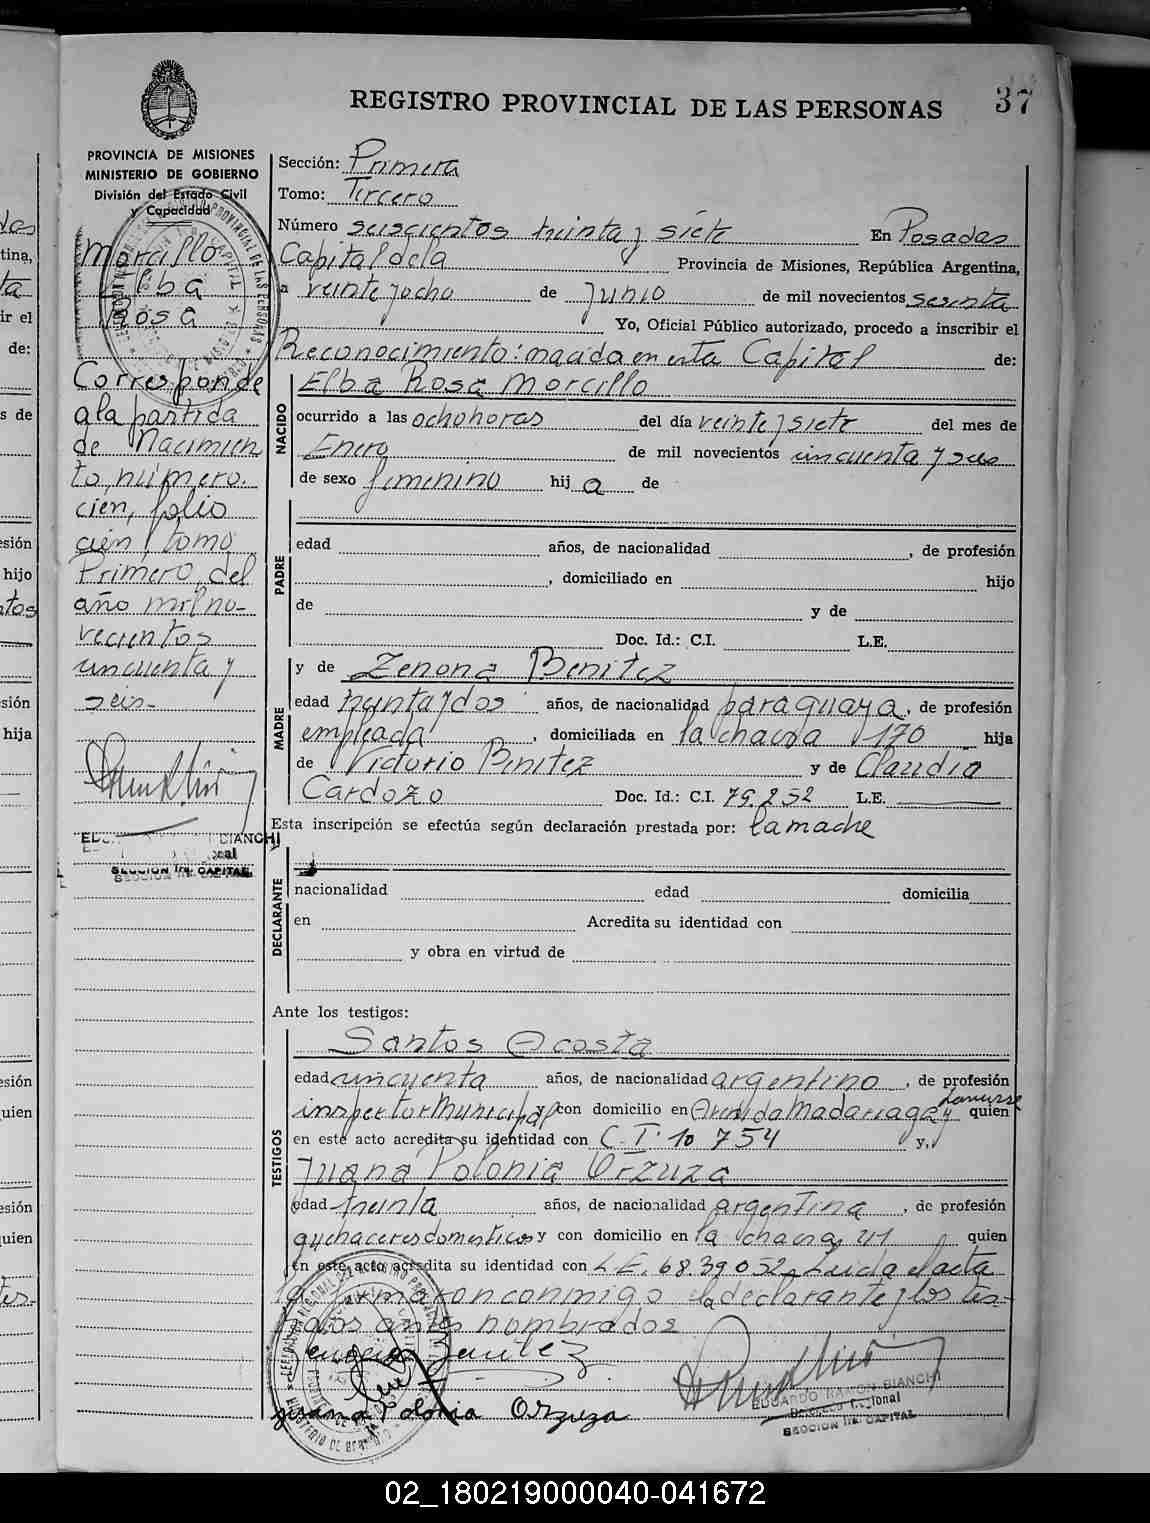 REGISTRO PROVINCIAL DE LAS PERSONAS
37
PROVINCIA DE MISIONES
MINISTERIO DE GOBIERNO
División del Estado Civil
y Capacidad
Morcillo
Elba
Rosa
Corresponde
a la partida
de Nacimien
to, número
cien, folio
cien, tomo
Primero, del
año mil no-
vecientos
cincuenta y
seis-
BIANCHI
SECCION 1ra. CAPITAL
Sección: Primera
Tomo: Tercero
Número seiscientos treinta y siete En Posadas
Capital de la Provincia de Misiones, República Argentina,
a veinte y ocho de Junio de mil novecientos sesenta
Yo, Oficial Público autorizado, procedo a inscribir el
Reconocimiento: nacida en esta Capital de:
NACIDO
Elba Rosa Morcillo
ocurrido a las ocho horas del día veinte y siete del mes de
Enero de mil novecientos cincuenta y seis
de sexo femenino hij a de
PADRE
edad años, de nacionalidad , de profesión
, domiciliado en hijo
de y de
Doc. Id.: C.I. L.E.
MADRE
y de Zenona Benitez
edad treinta y dos años, de nacionalidad paraguaya, de profesión
empleada, domiciliada en la chacra 170 hija
de Victorio Benitez y de Claudia
Cardozo Doc. Id.: C.I. 79.252 L.E.
Esta inscripción se efectúa según declaración prestada por: la madre
DECLARANTE
nacionalidad edad domicilia
en Acredita su identidad con
y obra en virtud de
Ante los testigos:
TESTIGOS
Santos Acosta
edad cincuenta años, de nacionalidad argentino, de profesión
inspector Municipal y con domicilio en Avenida Madariaga y Lanusse quien
en este acto acredita su identidad con C.I. 10 754 y,
Juana Polonia Orzuza
edad treinta años, de nacionalidad argentina, de profesión
quehaceres domesticos y con domicilio en la chacra 41 quien
en este acto acredita su identidad con L.E. 68.39052- Leida el acta
la firmaron conmigo la declarante y los tes-
tigos antes nombrados
Juana Polonia Orzuza
EDUARDO RAMON BIANCHI
SECCION 1ra. CAPITAL
02_180219000040-041672